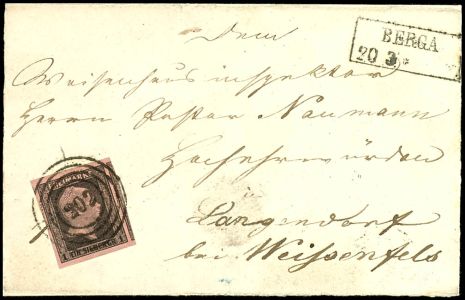 Dem
BERGA
20 3
Waisenhausinspektor
Herrn Pastor Naumann
Hochehrwürden
Langendorf
bei Weissenfels
FREIMARKE
202
1 EIN SILBERGR. 1